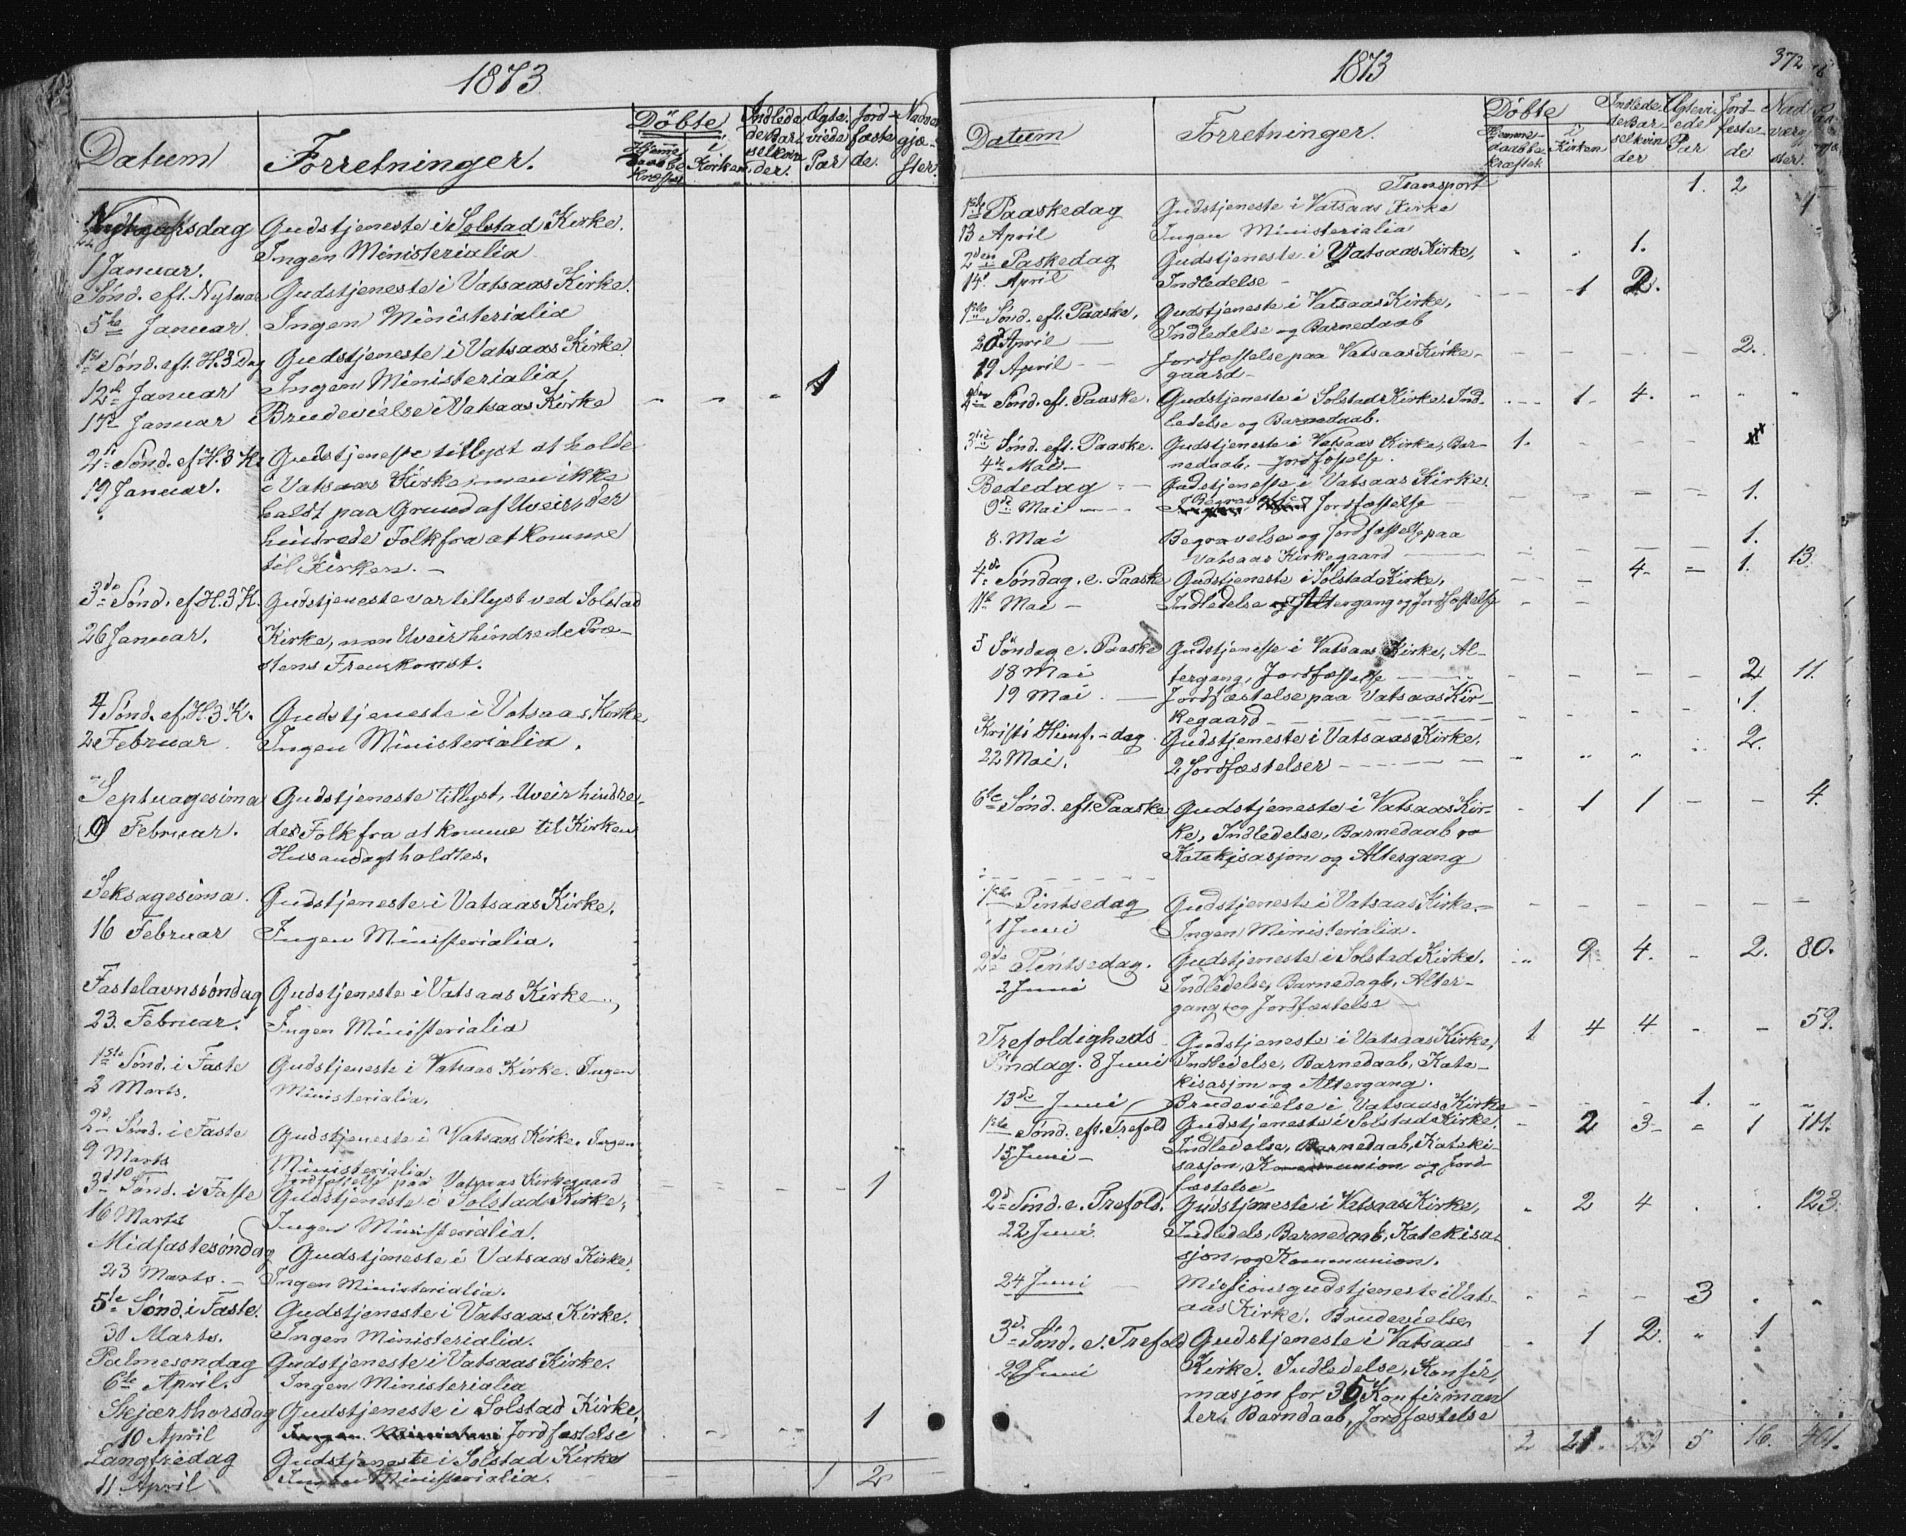 1873
Datum Forretninger. Döbte Hjemme- daabbe- kræftet i Kirken Indlede- de Bar- selkvin- der. Ægte- viede Par Jord- fæste- de. Nadver- gjæ- ster.
Nytaarsdag Gudstjeneste i Solstad Kirke.
1 Januar. Ingen Ministerialia
Sönd. eft. Nytaar Gudstjeneste i Vatsaas Kirke.
5te Januar Ingen Ministerialia
1st Sönd. eft. H. 3 Dag Gudstjeneste i Vatsaas Kirke
12te Januar Ingen Ministerialia
17de Januar Brudevielse i Vatsaas Kirke - - - 1
2den Sönd. ef. H. 3 K. Gudstjeneste tillyst at holde
19 Januar. i Vatsaas Kirke, men ikke
holdt paa Grund af Uveir, der
hindrede Folk fra at komme
til Kirken. -
3de Sönd. ef. H. 3 K. Gudstjeneste var tillyst ved Solstad
26 Januar. Kirke, men Uveir hindrede Præ-
stens Fremkomst.
4 Sönd. ef. H. 3 K. Gudstjeneste i Vatsaas Kirke
2 Februar. Ingen Ministerialia.
Septuagesima Gudstjeneste tillyst, Uveir hindre-
9 Februar. des Folk fra at komme til Kirken
Husandagt holdtes.
Seksagesima. Gudstjeneste i Vatsaas Kirke.
16 Februar Ingen Ministerialia.
Fastelavnssöndag Gudstjeneste i Vatsaas Kirke
23. Februar. Ingen Ministerialia
1ste Sönd. i Faste Gudstjeneste i Vatsaas Kirke. Ingen
2 Marts. Ministerialia.
2d Sönd. i Faste Gudstjeneste i Vatsaas Kirke. Ingen
9 Marts Ministerialia
10 Jordfæstelse paa Vatsaas Kirkegaard - - - - - 1
3die Sönd. i Faste Gudstjeneste i Solstad Kirke,
16 Marts Ingen Ministerialia.
Midfastesöndag Gudstjeneste i Vatsaas Kirke.
23 Marts. - Ingen Ministerialia.
5te Sönd. i Faste. Gudstjeneste i Vatsaas Kirke.
30 Marts. Ingen Ministerialia.
Palmesondag Gudstjeneste i Vatsaas Kirke.
6te April. Ingen Ministerialia
Skjærthorsdag Gudstjeneste i Solstad Kirke, 1
10 April Jordfæstelse
Langfredag Gudstjeneste i Solstad Kirke
11 April Ingen Ministerialia. 1 2
1873 372
Datum Forretninger. Döbte Hjemme- daabbe- kræftet. i Kirken Indlede- de Bar- selkvin- der Ægtevi- ede Par Jord- fæste- de Nad- verg. ster.
Transport 1. 2
1ste Paaskedag Gudstjeneste i Vatsaas Kirke
13 April Ingen Ministerialia
2den Paskedag Gudstjeneste i Vatsaas Kirke, 1.
14de April Indledelse -
1ste Sönd. eft. Paaske, Gudstjeneste i Vatsaas Kirke, 1 2.
20 April Indledelse og Barnedaab
19 April - Jordfæstelse paa Vatsaas Kirke- 2.
gaard -
2den Sönd. eft. Paaske. Gudstjeneste i Solstad Kirke. Ind- 1. 4.
ledelse og Barnedaab.
3die Sönd. eft. Paaske. Gudstjeneste i Vatsaas Kirke, Bar- 1.
4de Mai - nedaab. - Jordfæstelse.
Bededag Gudstjeneste i Vatsaas Kirke.
9de Mai Begravelse Jordfæstelse 1.
8. Mai Begravelse og Jordfæstelse paa 1.
Vatsaas Kirkegaard
4de Söndag. e. Paaske Gudstjeneste i Solstad Kirke, 4 1. 13.
11te Mai - Indledelse Altergang og Jordfæstelse
5 Söndag e. Paaske Gudstjeneste i Vatsaas Kirke, Al-
18 Mai tergang, Jordfæstelse 2 11.
19 Mai. Jordfæstelse paa Vatsaas Kir- 1.
kegaard
Kristi Himf.-dag. Gudstjeneste i Vatsaas Kirke. 2.
22 Mai. 2 Jordfæstelser
6te Sönd. eft. Paaske Gudstjeneste i Vatsaas Kir- 1 1 - - 4.
ke, Indledelse, Barnedaab
Katekisasjon og Altergang
1ste Pintsedag Gudstjeneste i Vatsaas Kirke. -
1 Juni Ingen Ministerialia.
2de Pintsedag. Gudstjeneste i Solstad Kirke. 9 4. - 2. 80.
2 Juni Indledelse, Barnedaab, Alter-
gang og Jordfæstelse
Trefoldigheds- Gudstjeneste i Vatsaas Kirke, 1 4 4 - - 59.
Söndag. 8 Juni Indledelse, Barnedaab, Kate-
kisasjon og Altergang.
13de Juni Brudevielse i Vatsaas Kirke 1.
1ste Sönd. eft. Trefold Gudstjeneste i Solstad Kirke. 2 3 - 1 111.
15 Juni - Indledelse, Barnedaab, Kateki-
sasjon, Kommunion og Jord-
fæstelse
2d Sönd. e. Trefold. Gudstjeneste i Vatsaas Kirke, 2 4 123.
22 Juni Indledels, Barnedaab, Katekisa-
sjon og Kommunion.
24 Juni Missionsgudstjeneste i Vats- 3
aas Kirke. Brudevielser
3d Sönd. e. Trefold Gudstjeneste i Vatsaas 1 2. 1
29 Juni Kirke. Indledelse, Konfir-
masjon for 35 Konfirman-
ter, Barndaab, Jordfæstelse
2 21. 29 5 16. 401.